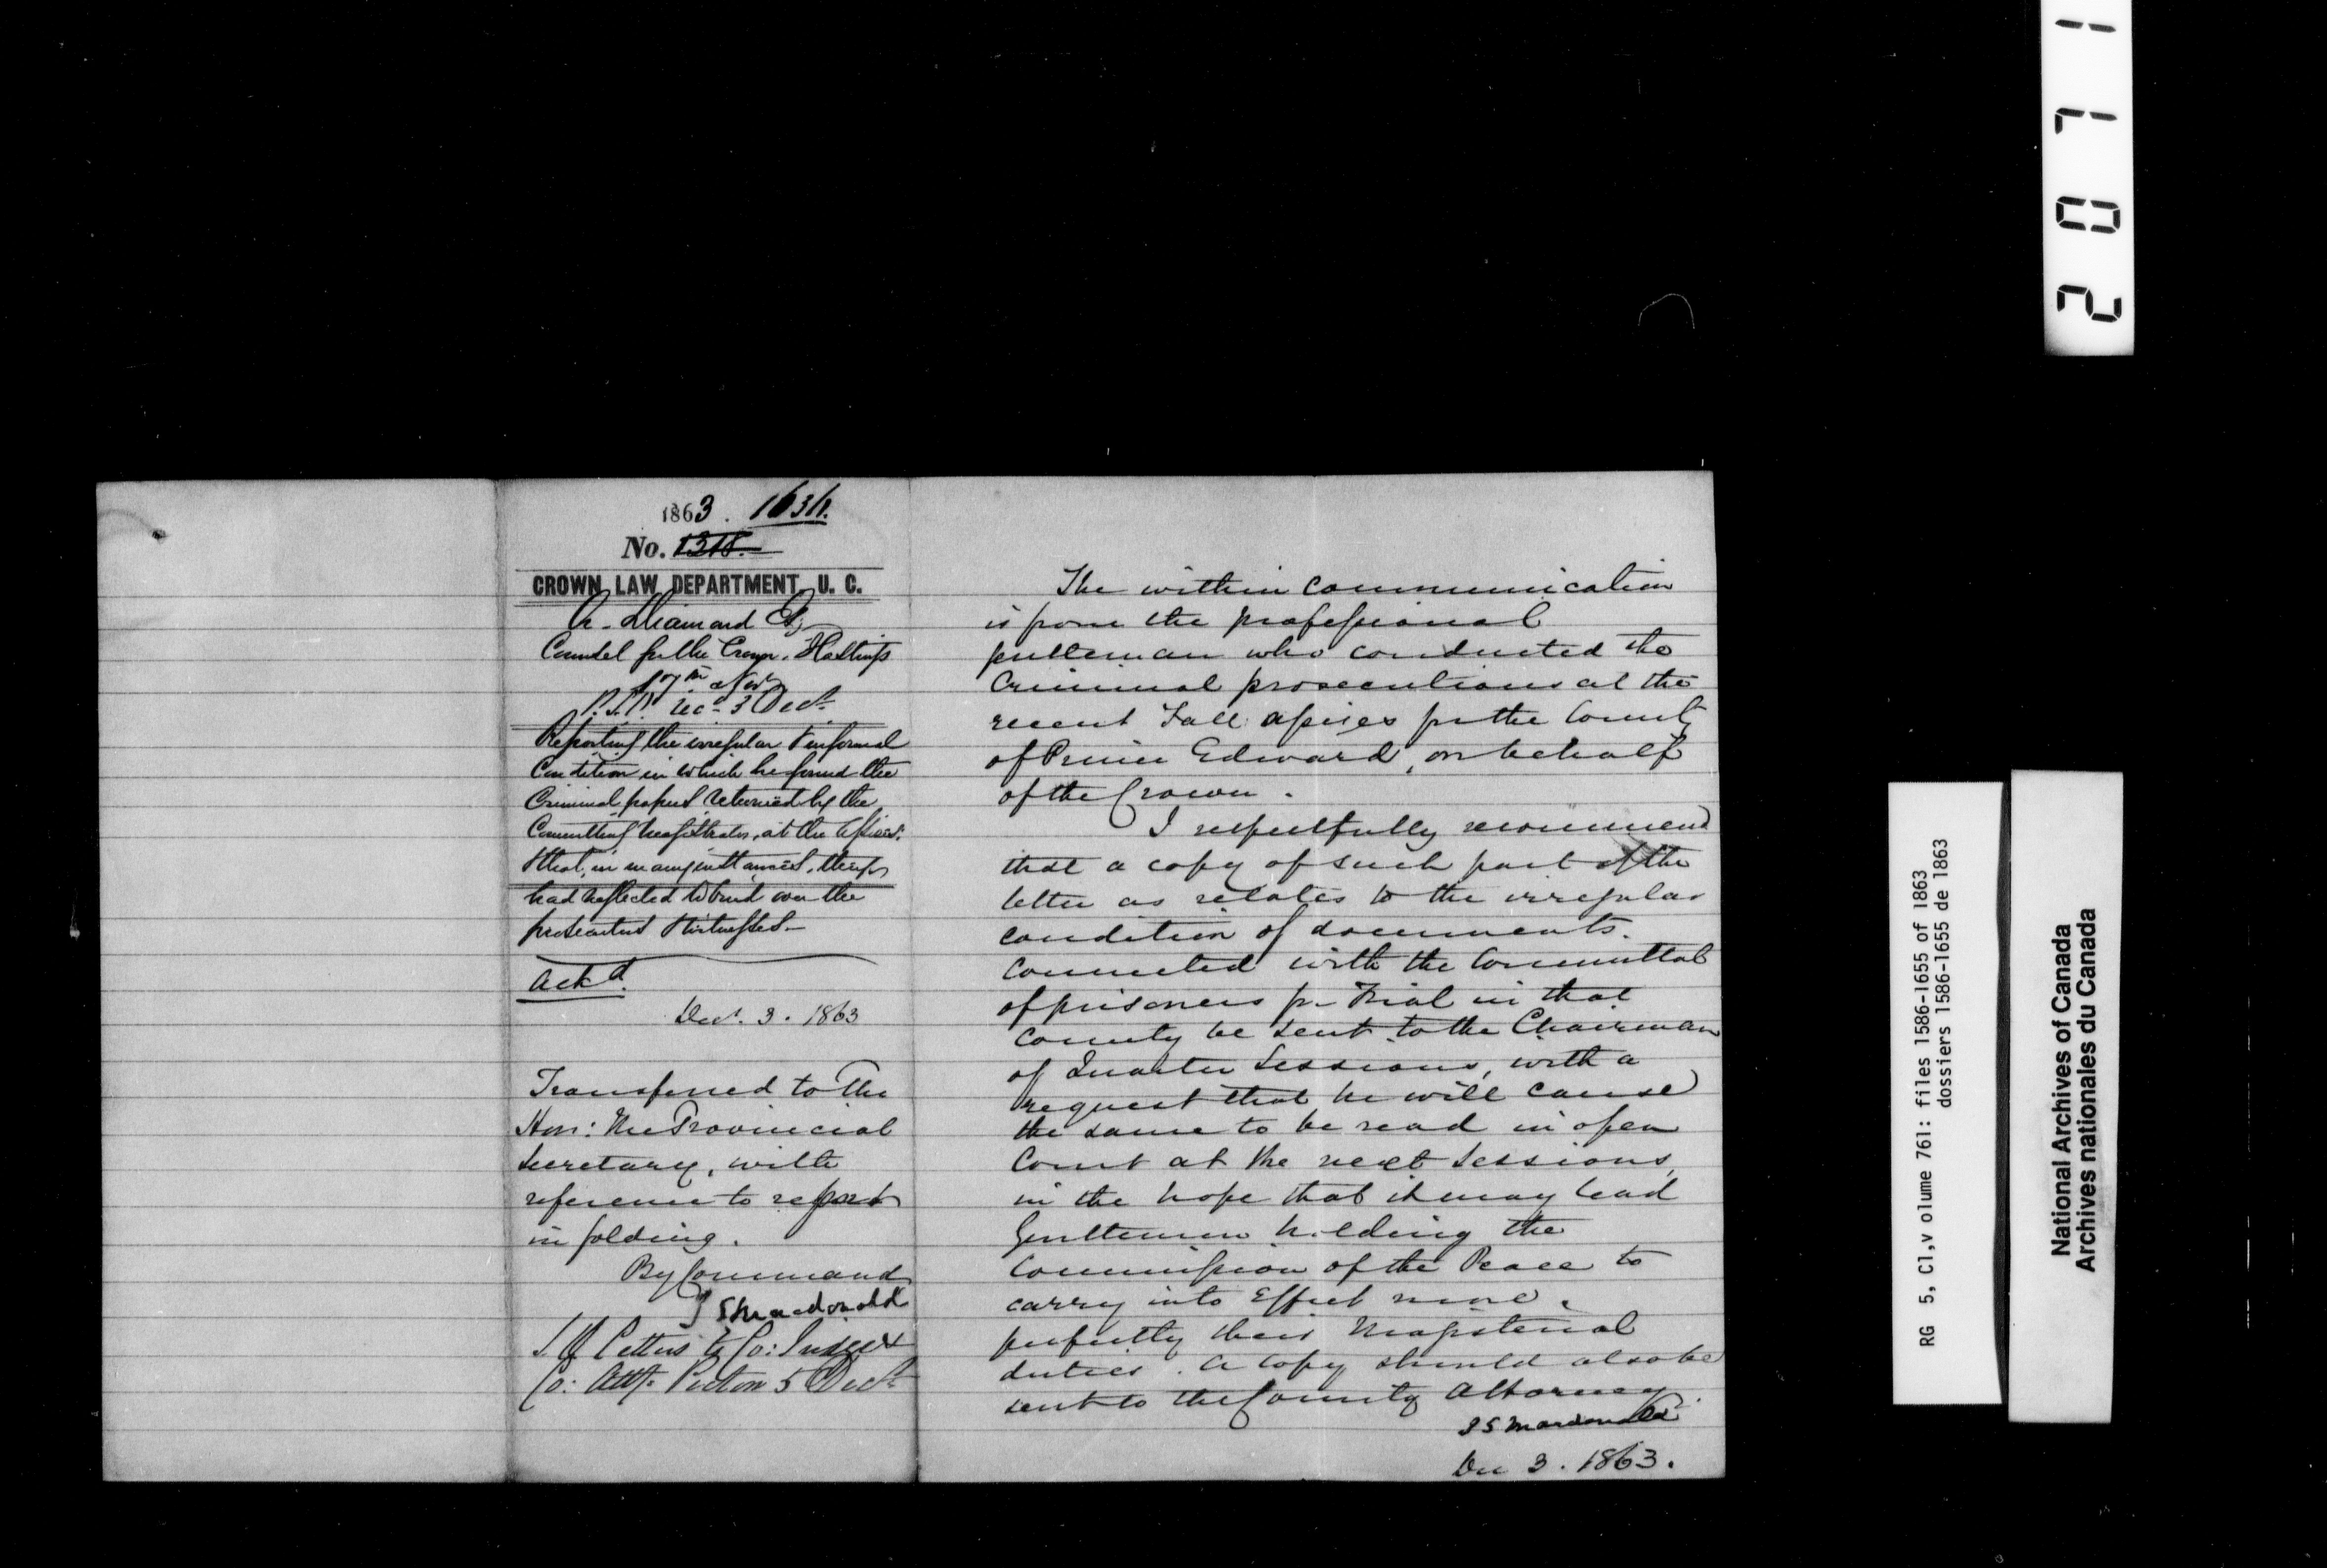 1863. 1636.
No. 1318.
CROWN LAW DEPARTMENT, U. C.
A. Diamond Esq
Counsel for the Crown. Hastings
17th Novr
P.S.O. Recd 3 Decr
Reporting the irregular & informal
Condition in which he found the
Criminal papers returned by the
Committing Magistrates, at the Assizes:
& that, in many instances, they
had neglected to bind over the
prosecutors & witnesses.
Ackd.
Decr. 3. 1863
Transferred to The
Hon: the Provincial
Secretary, with
reference to report
in folding.
By Command
J S Macdonald
Pettus Esq Co: Judge &
Co: Atty. Picton 5 Decr
The within communication
is from the professional
gentleman who conducted the
Criminal prosecutions at the
recent Fall assizes for the County
of Prince Edward, on behalf
of the Crown.
I respectfully recommend
that a copy of such part of the
letter as relates to the irregular
condition of documents
connected with the Committal
of prisoners for Trial in that
County be sent to the Chairman
of Quarter Sessions, with a
request that he will cause
the same to be read in open
Court at the next Sessions,
in the hope that it may lead
Gentlemen holding the
Commission of the Peace to
carry into Effect more
perfectly their Magisterial
duties. A Copy should also be
sent to the County Attorney.
J S Macdonald
Dec 3. 1863.
20711
RG 5, C1,v olume 761: files 1586-1655 of 1863
dossiers 1586-1655 de 1863
National Archives of Canada
Archives nationales du Canada